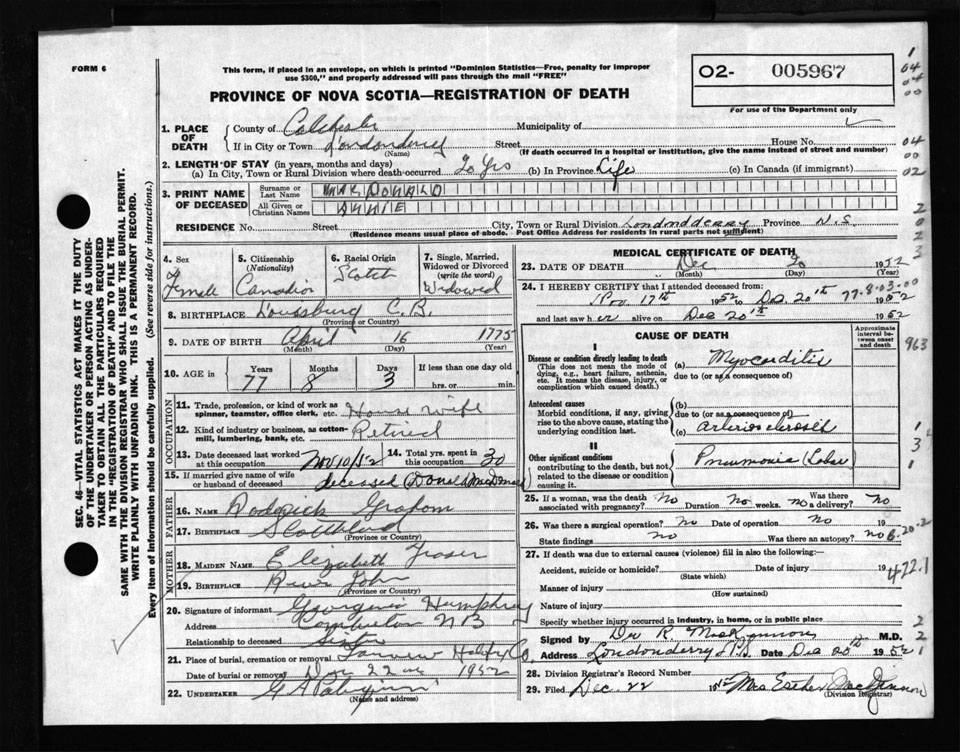 FORM 6
This form, if placed in an envelope, on which is printed "Dominion Statistics—Free, penalty for improper
use $300," and properly addressed will pass through the mail "FREE"
PROVINCE OF NOVA SCOTIA—REGISTRATION OF DEATH
02- 005967
For use of the Department only
SEC. 46—VITAL STATISTICS ACT MAKES IT THE DUTY
OF THE UNDERTAKER OR PERSON ACTING AS UNDER-
TAKER TO OBTAIN ALL THE PARTICULARS REQUIRED
IN THE "REGISTRATION OF DEATH" AND TO FILE THE
SAME WITH THE DIVISION REGISTRAR WHO SHALL ISSUE THE BURIAL PERMIT.
WRITE PLAINLY WITH UNFADING INK. THIS IS A PERMANENT RECORD.
Every item of information should be carefully supplied. (See reverse side for instructions.)
1. PLACE OF DEATH County of Colchester Municipality of
If in City or Town Londonderry Street House No.
(Name) (If death occurred in a hospital or institution, give the name instead of street and number)
2. LENGTH OF STAY (in years, months and days)
(a) In City, Town or Rural Division where death occurred 20 Yrs (b) In Province Life (c) In Canada (if immigrant)
3. PRINT NAME OF DECEASED Surname or Last Name MACDONALD
All Given or Christian Names ANNIE
RESIDENCE No. Street City, Town or Rural Division Londondderry Province N.S.
(Residence means usual place of abode. Post Office Address for residents in rural parts not sufficient)
4. Sex Female
5. Citizenship (Nationality) Canadian
6. Racial Origin Scotch
7. Single, Married, Widowed or Divorced (write the word) Widowed
8. BIRTHPLACE Louisburg C.B.
(Province or Country)
9. DATE OF BIRTH April 16 1775
(Month) (Day) (Year)
10. AGE in Years 77 Months 8 Days 3 If less than one day old
hrs. or min.
OCCUPATION
11. Trade, profession, or kind of work as spinner, teamster, office clerk, etc. House wife
12. Kind of industry or business, as cotton-mill, lumbering, bank, etc. Retired
13. Date deceased last worked at this occupation Nov 10/52
14. Total yrs. spent in this occupation 30
15. If married give name of wife or husband of deceased deceased (Donald MacDonald
FATHER
16. NAME Roderick Graham
17. BIRTHPLACE Scottland
(Province or Country)
MOTHER
18. MAIDEN NAME Elizabeth Fraser
19. BIRTHPLACE River John
(Province or Country)
20. Signature of informant Georgenia Humphrey
Address Campbelton N B
Relationship to deceased Sister
21. Place of burial, cremation or removal Fairview Halifax Co.
Date of burial or removal 22 1952
22. UNDERTAKER
(Name and address)
MEDICAL CERTIFICATE OF DEATH
23. DATE OF DEATH Dec 20 1952
(Month) (Day) (Year)
24. I HEREBY CERTIFY that I attended deceased from:
Nov. 17th 1952 to Dec. 20th 1952
77-8-03-00
and last saw her alive on Dec 20th 1952
CAUSE OF DEATH
Approximate interval between onset and death
I
Disease or condition directly leading to death
(This does not mean the mode of dying, e.g., heart failure, asthenia, etc. It means the disease, injury, or complication which caused death.)
(a) Myocarditis
due to (or as a consequence of)
Antecedent causes
Morbid conditions, if any, giving rise to the above cause, stating the underlying condition last.
(b)
due to (or as a consequence of)
(c) arteriosclerosis
II
Other significant conditions contributing to the death, but not related to the disease or condition causing it.
Pneumonia (Lobar)
25. If a woman, was the death associated with pregnancy? No Duration No weeks. Was there a delivery? No No
26. Was there surgical operation? No Date of operation no 19
State findings no Was there an autopsy? no
27. If death was due to external causes (violence) fill in also the following:—
Accident, suicide or homicide? Date of injury 19
(State which)
Manner of injury
(How sustained)
Nature of injury
Specify whether injury occurred in industry, in home, or in public place
Signed by Dr R. MacKinnon M.D.
Address Londonderry N.S. Date Dec 20th 1952
28. Division Registrar's Record Number
29. Filed Dec. 22 Mrs Esther MacKinnon
(Division Registrar)
1
04
04
00
04
00
02
2
0
2
2
3
963
1
3
6-20-2
472.1
2
2
1